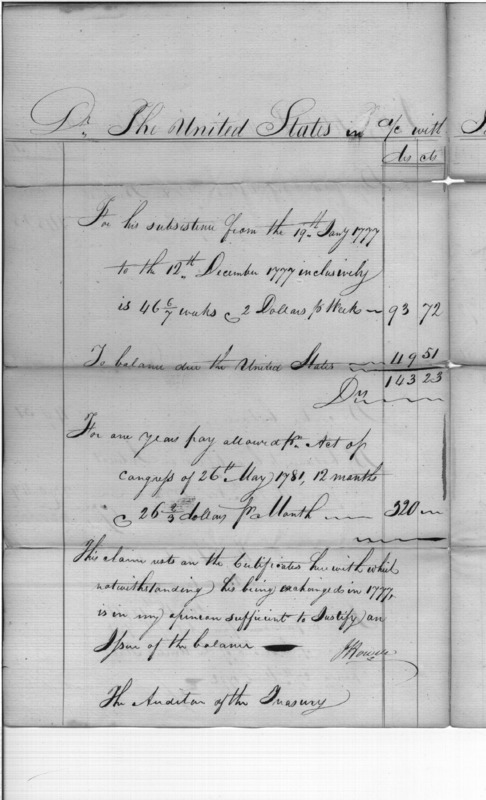 Dr. The United States in a/c with
dls cts
For his subsistence from the 19th Jany 1777
to the 12th December 1777 inclusively
is 46 6/7 weeks @ 2 Dollars pr Week 93 72
To balance due the United States 49 51
143 23
Dr
For one years pay allowed pr. Act of
Congress of 26th May 1781, 12 months
@ 26 2/3 dollars pr Month 320
This claim rests on the Certificates herewith which
notwithstanding his being exchanged in 1777,
is in my opinion sufficient to Justify an
Issue of the balance
The Auditor of the Treasury